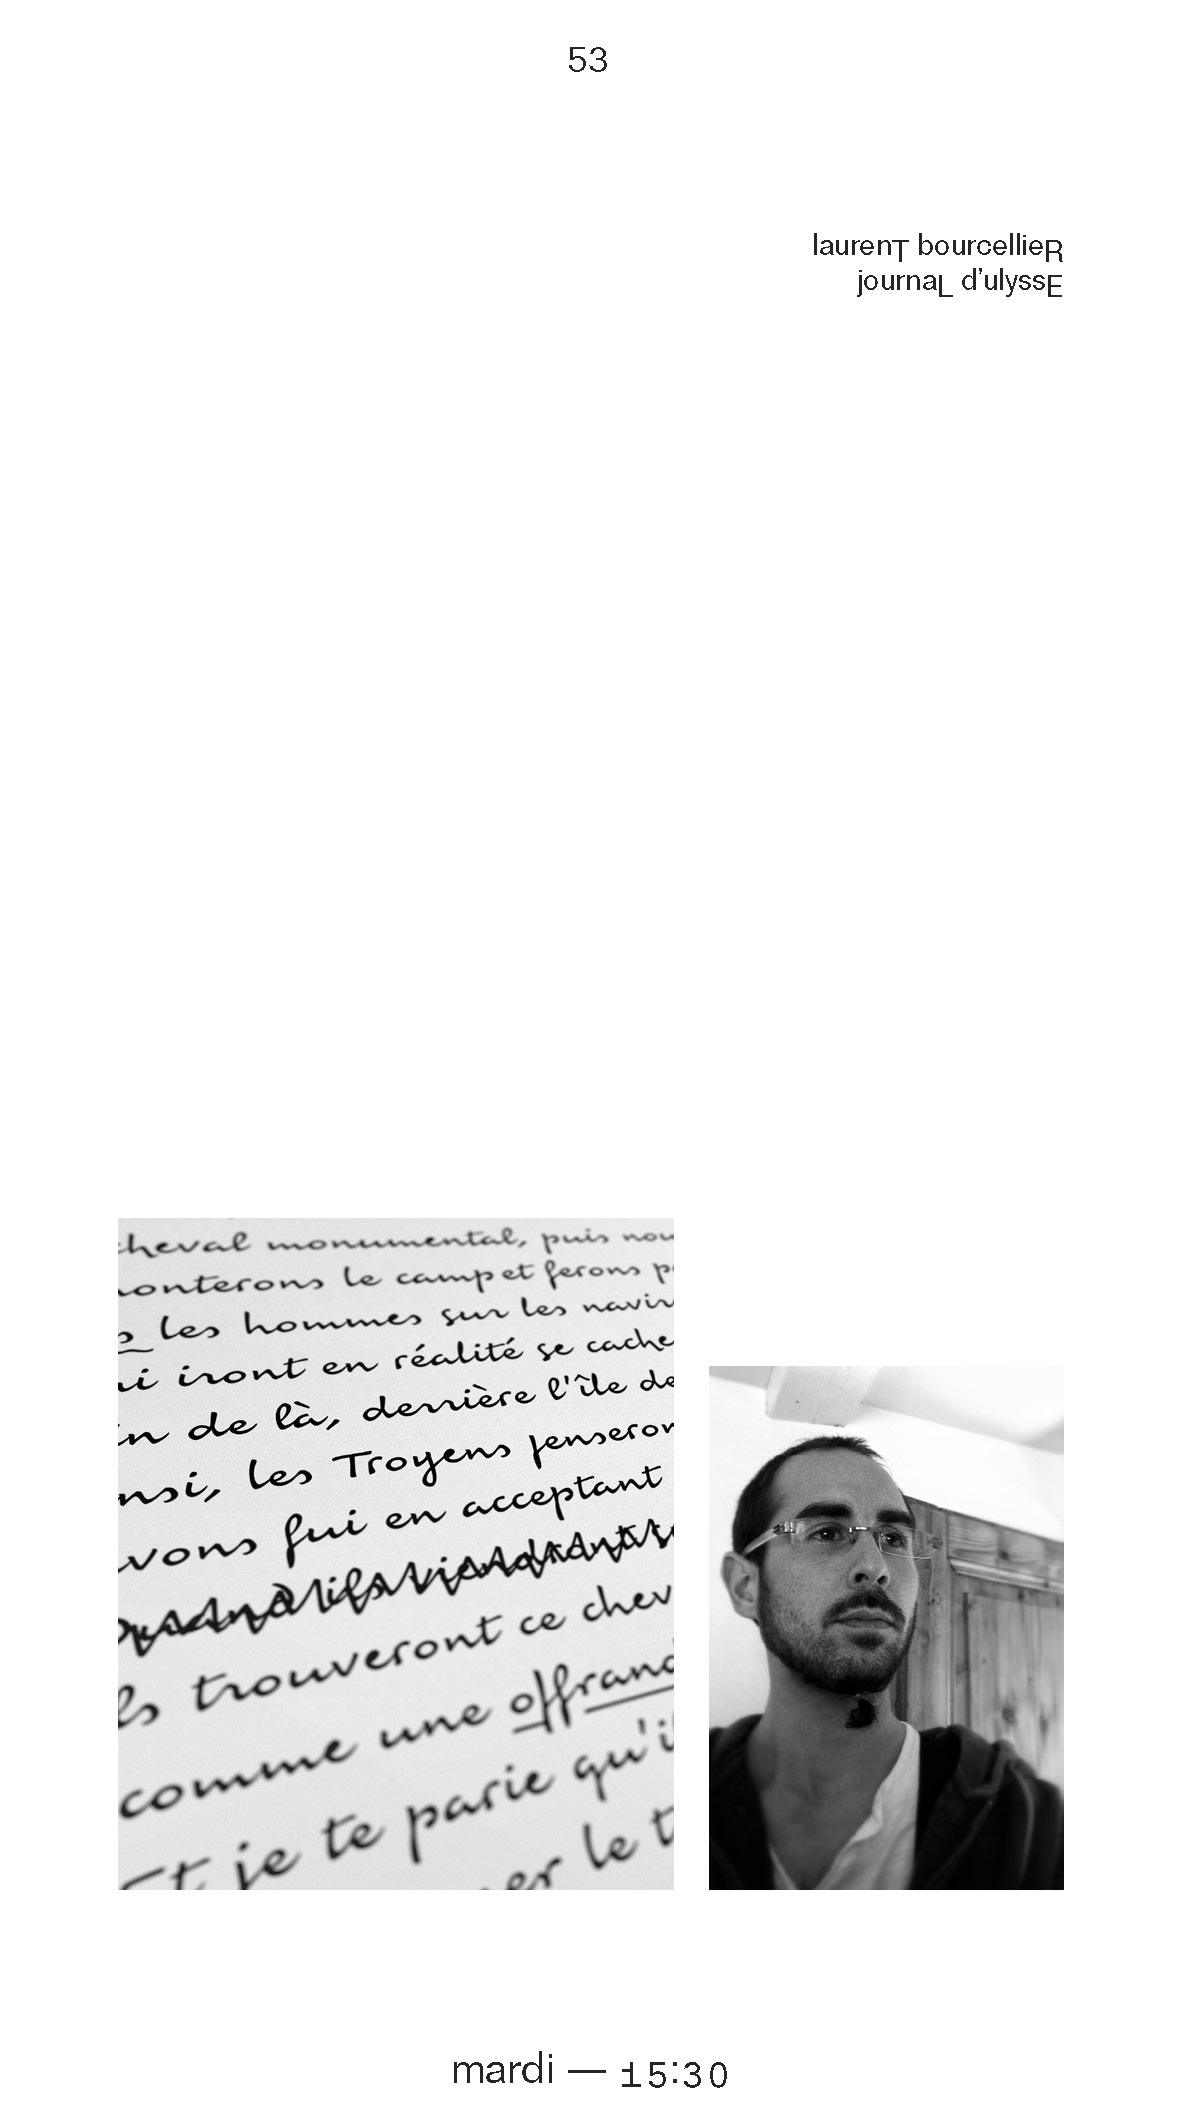 53
laurenT bourcellieR
journaL d'ulyssE
cheval monumental, puis nou
onterons le camp et ferons p
les hommes sur les navir
i iront en réalité se cache
in de là, derrière l'île de
nsi, les Troyens penseron
vons fui en acceptant
ls trouveront ce chev
comme une offrand
Et je te parie qu'il
er le t
mardi — 15:30